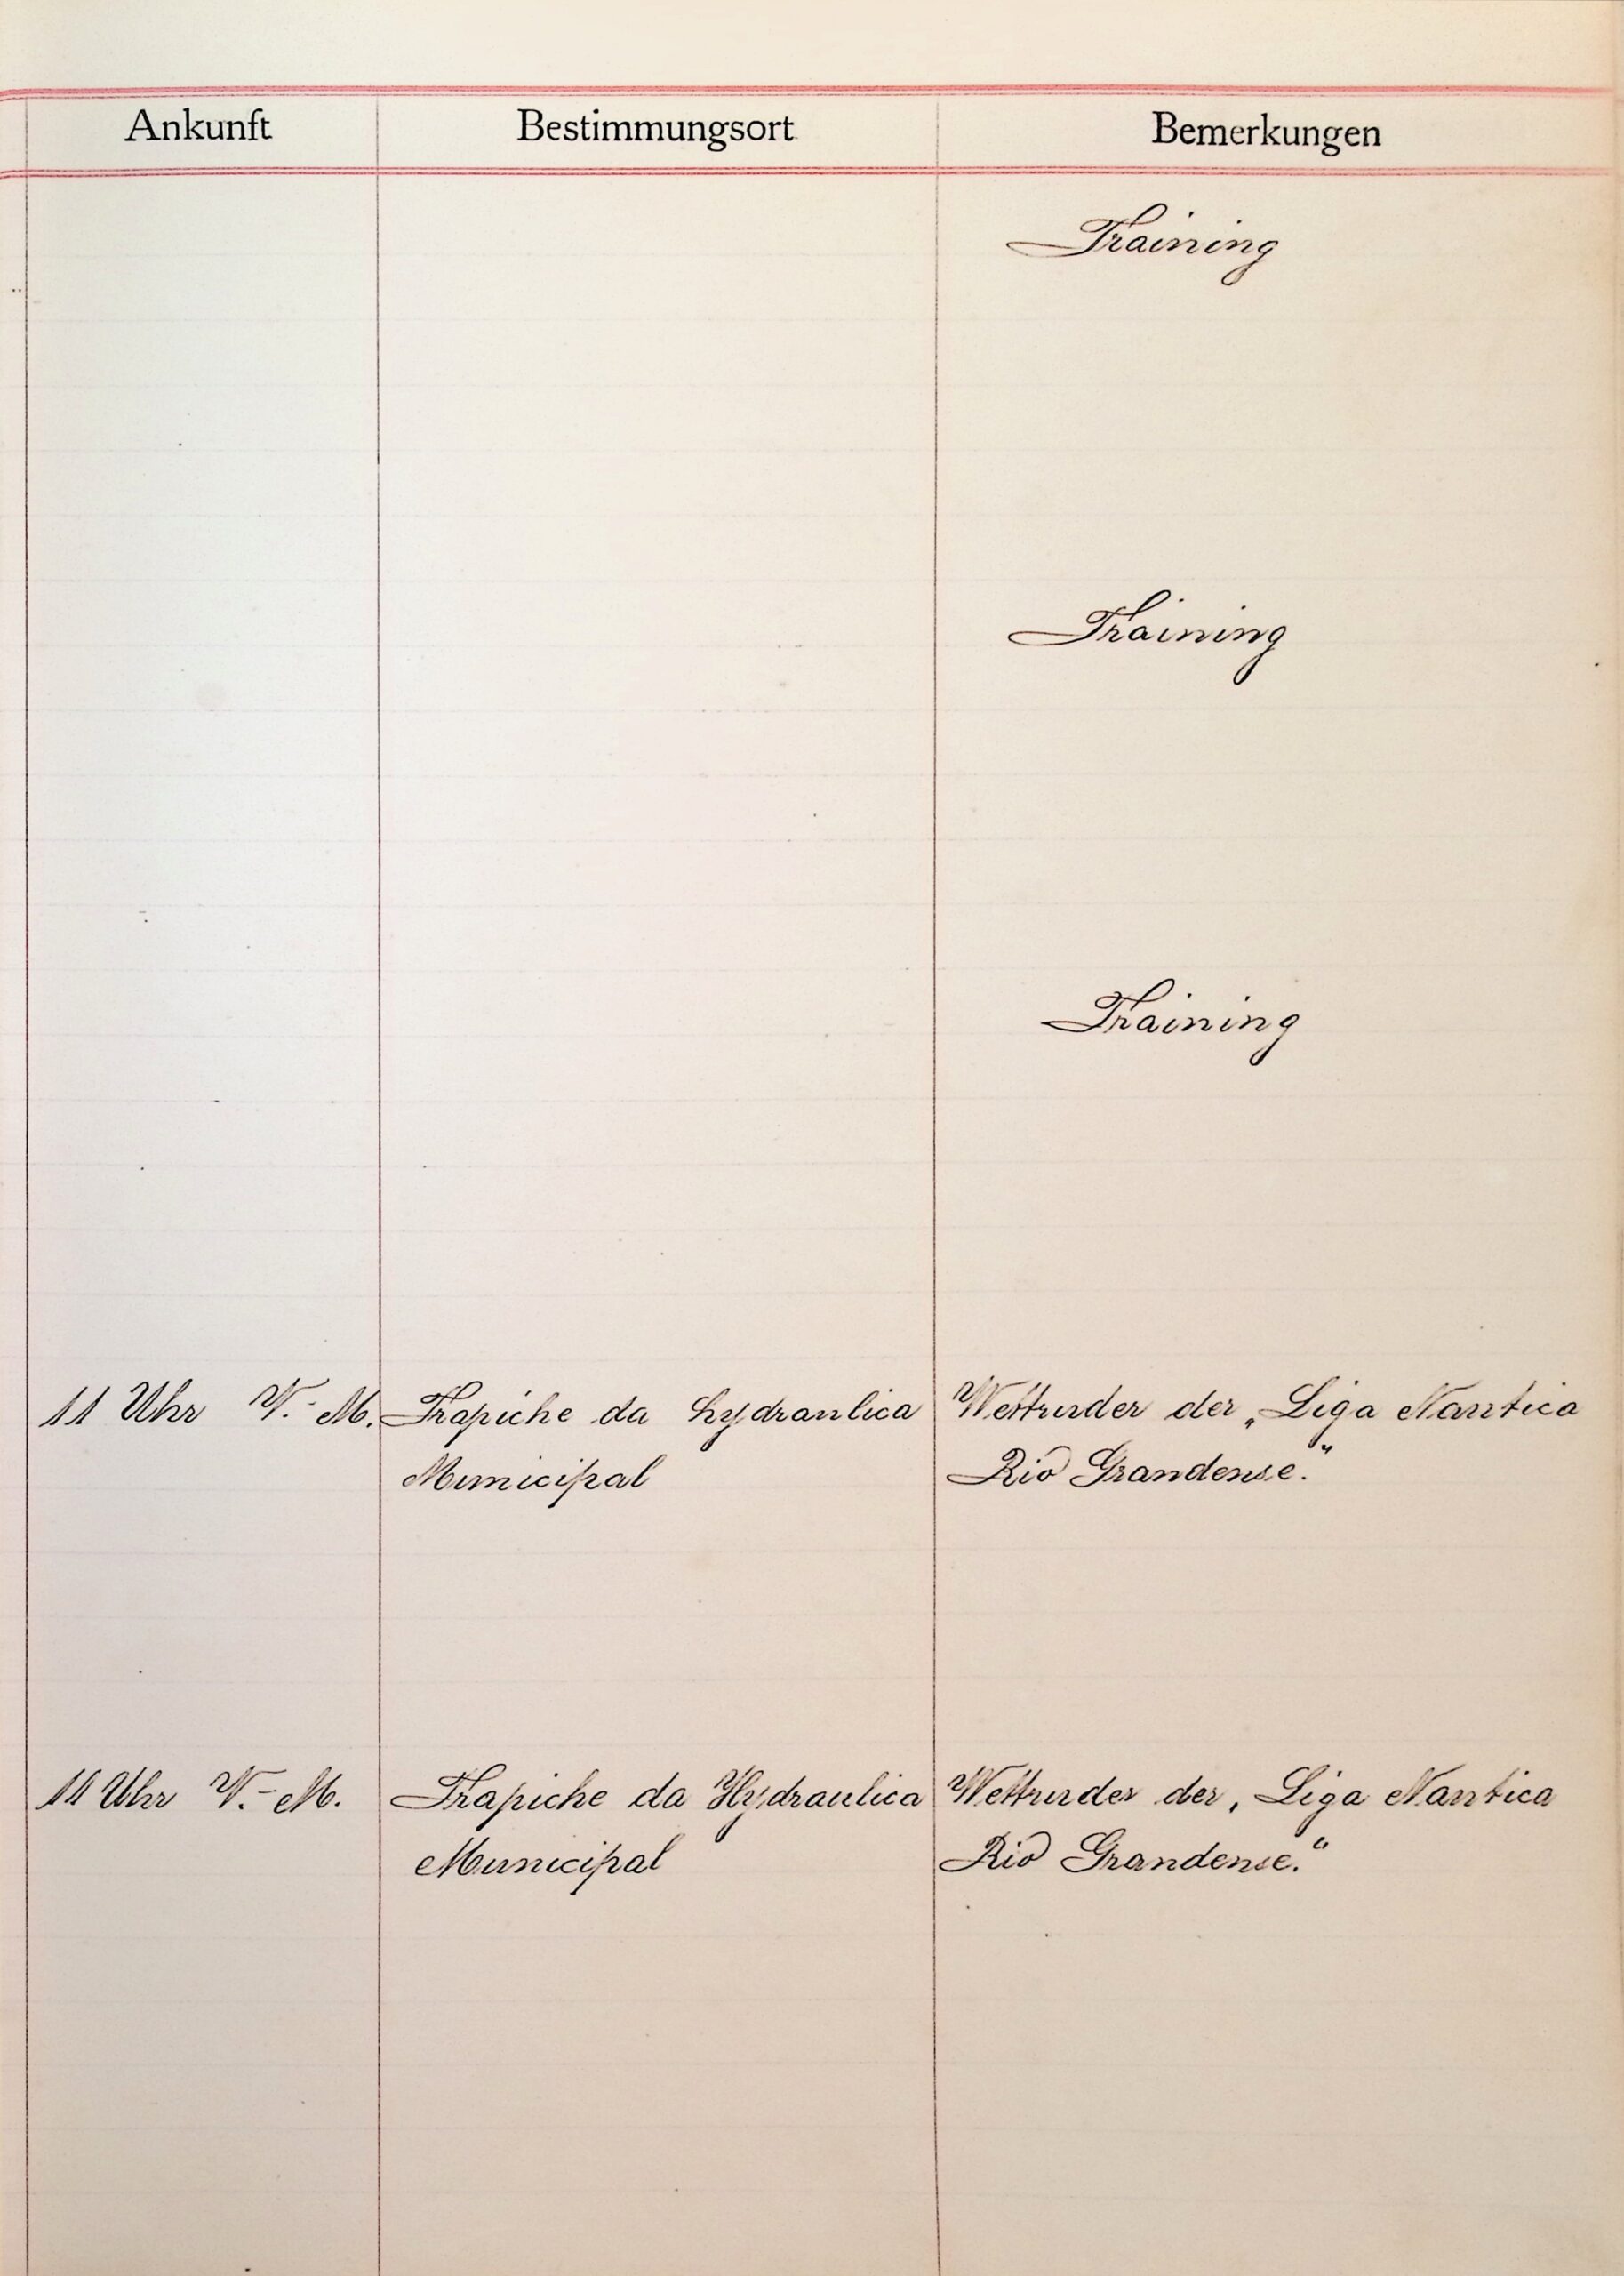 Ankunft Bestimmungsort Bemerkungen
Training
Training
Training
11 Uhr V.-M. Trapiche da hydraulica Wettruder der „Liga Nautica
Municipal Rio Grandense.“
11 Uhr V.-M. Trapiche da Hydraulica Wettruder der „Liga Nautica
Municipal Rio Grandense.“